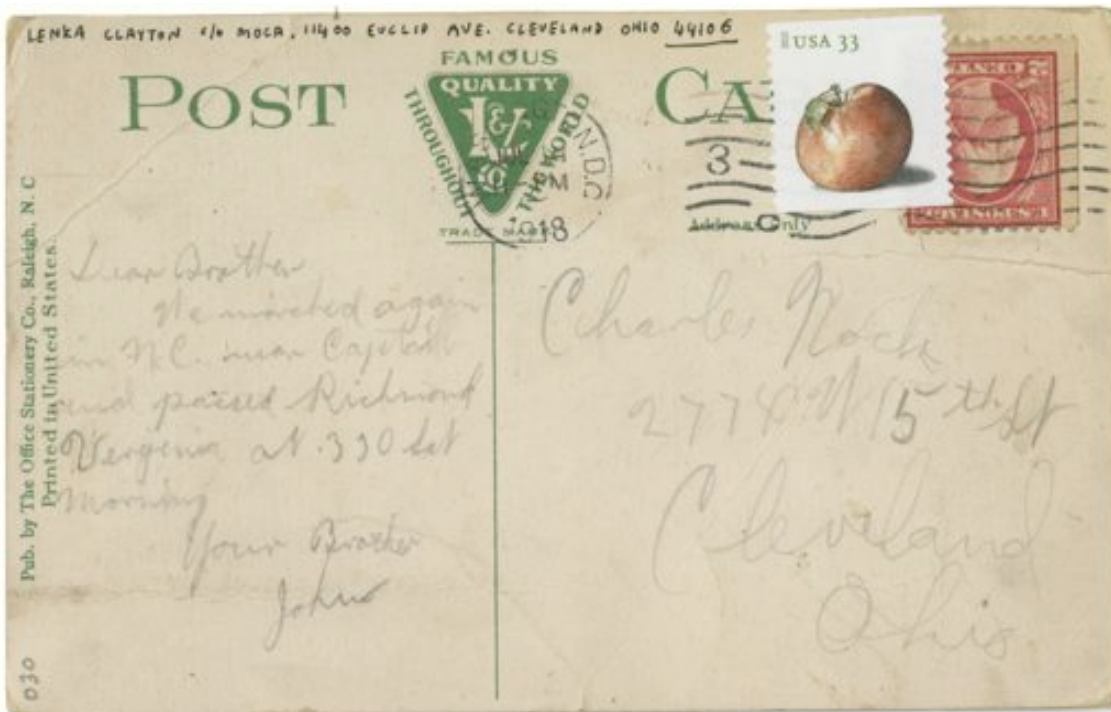 LENKA CLAYTON c/o MOCA, 11400 EUCLID AVE. CLEVELAND OHIO 44106
POST CA
FAMOUS
QUALITY
THROUGHOUT THE WORLD
TRADE MARK
N.D.C.
PM
1918
3
USA 33
Address Only
Pub. by The Office Stationery Co., Raleigh, N. C
Printed in United States.
Dear Brother
We marched again
in N.C. near Capitah
and passed Richmond
Verginia at 330 Sat
Morning
Your Brother
John
Charle Nock
2774 W 15th St
Cleveland
Ohio
030